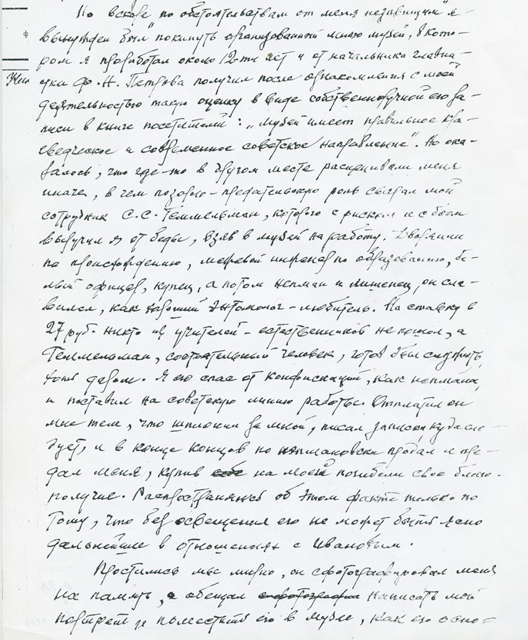 Но вскоре по обстоятельствам от меня независящим я
вынужден был покинуть организованной мною музей, в кото-
ром я проработал около 12ти лет и от начальника главна-
уки Ф. Н. Петрова получил после ознакомления с моей
деятельностью такую оценку в виде собственноручной его за-
писи в книге посетителей: „Музей имеет правильное кра-
еведческое и современное советское направление". Но ока-
залось, что где-то в другом месте расценивали меня
иначе, в чем позорно-предательскую роль сыграл мой
сотрудник С. С. Геммельман, которого с риском и с боем
выручил я от беды, взяв в музей на работу. Дворянин
по происхождению, межевой инженер по образованию, бе-
лый офицер, купец, а потом непман и лишенец, он сла-
вился, как хороший энтомолог-любитель. На ставку в
27 руб. никто из учителей-естественников не пошел, а
Геммельман, состоятельный человек, готов был служить
хотя даром. Я его спас от конфискации, как непмана,
и поставил на советскую линию работы. Отплатил он
мне тем, что шпионил за мной, писал записки куда сле-
дует, и в конце концов по непмановски продал и пре-
дал меня, купив на моей погибели свое благо-
получие. Распространяюсь об этом факте только по
тому, что без освещения его не может быть ясно
дальнейшее в отношениях с Ивановым.
Простились мы мирно, он сфотографировал меня
на память, а обещал написать мой
портрет и поместить его в музее, как его осно-